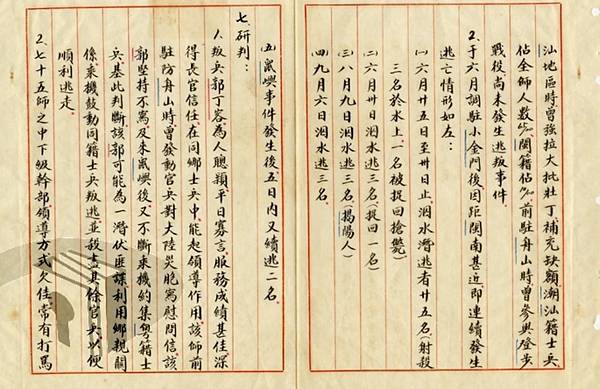 汕地區時曾強拉大批壯丁補充缺額,潮汕籍士兵
佔全師人數 閩籍佔 前駐舟山時曾參與登步
戰役,尚未發生逃叛事件。
2.于六月調駐小金門後,因距閩南甚近,即連續發生
逃亡情形如左:
㈠六月廿五日至卅日止泅水潛逃者廿五名(射殺
三名於水上,一名被捉回槍斃)
㈡六月卅日泅水逃三名(捉回一名)
㈢八月九日泅水逃三名(揭陽人)
㈣九月六日泅水逃三名。
㈤鼠嶼事件發生後五日內又續逃二名。
七、研判:
1.叛兵郭丁容,為人聰穎平日寡言,服務成績甚佳,深
得長官信任,在同鄉士兵中,能起領導作用,該師前
駐防舟山時曾發動官兵對大陸災胞寫慰問信,該
郭堅持不寫,及來鼠嶼後又不斷乘機約集粵籍士
兵,基此判斷,該郭可能為一潛伏匪諜利用鄉親關
係乘機鼓動同籍士兵叛逃並殺盡其餘官兵以便
順利逃走。
2.七十五師之中下級幹部領導方式欠佳,常有打罵